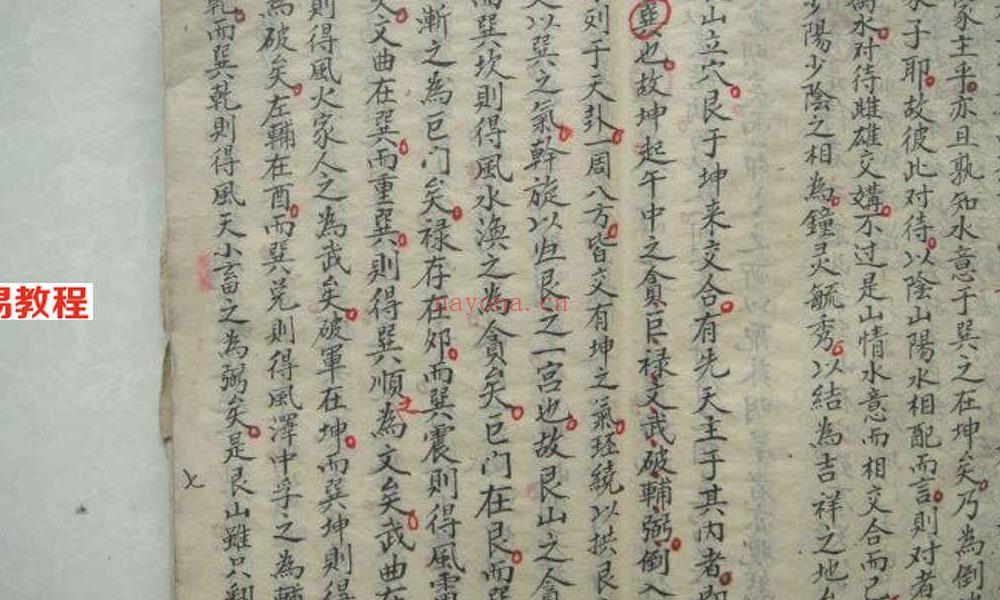 家主乎亦且孰知水意于巽之在坤矣乃為倒
家子耶故彼此对待以陰山陽水相配而言則对者
為水对待雌雄交媾不过是山情水意而相交合而已
少陽少陰之相為鐘灵毓秀以结為吉祥之地
山立穴艮于坤来交合有先天主于其内者即
巽也故坤起午中之貪巨禄文武破輔弼倒入
列于天卦一周八方皆交有坤之氣环繞以拱艮
以巽之氣斡旋以归艮之一宮也故艮山之貪
而巽坎則得風水渙之為貪矣巨门在艮而
漸之為巨门矣禄存在卯而巽震則得風雷
文曲在巽而重巽則得巽順之為文矣武曲在
則得風火家人之為武矣破軍在坤而巽坤則得
為破矣左輔在酉而巽兑則得風澤中孚之為輔
乾而巽乾則得風天小畜之為弼矣是艮山雖只
七
易教程
nayona.cn